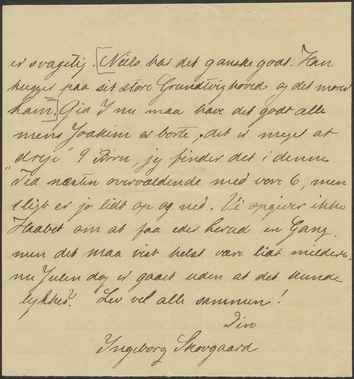 er svagelig. [Niels har det ganske godt. Han
hugger paa sit store Grundtvighoved og det morer
ham.] Gid I nu maa have det godt alle
mens Joakim er borte, det er meget at
"dreje" 9 Børn, jeg finder det i denne
Tid næsten overvældende med vore 6, men
sligt er jo lidt op og ned. Vi opgiver ikke
Haabet om at faa eder herud en Gang,
men det maa vist helst være lidt mildere,
nu Julen dog er gaaet uden at det kunde
lykkes. Lev vel alle sammen!
Din
Ingeborg Skovgaard